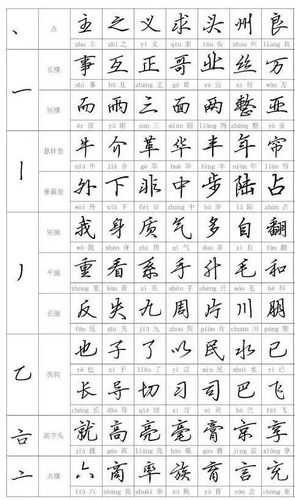 丶 点 主 之 义 求 头 州 良
zhu 主 zhi 之 yi 义 qiu 求 tóu 头 zhou 州 liang 良
一 长横 事 互 正 哥 业 丝 万
shi 事 hù 互 zhèng 正 gē 哥 yè 业 sī 丝 wàn 万
短横 而 雨 三 面 两 整 亚
ér 而 yǔ 雨 sān 三 miàn 面 liǎng 两 zhěng 整 yà 亚
丨 悬针竖 牛 介 革 华 丰 耳 帘
niú 牛 jiè 介 gé 革 huá 华 fēng 丰 ěr 耳 lián 帘
垂露竖 外 下 非 中 步 陆 占
wài 外 xià 下 fēi 非 zhōng 中 bù 步 lù 陆 zhàn 占
丿 短撇 我 身 质 气 多 自 翻
wǒ 我 shēn 身 zhì 质 qì 气 duō 多 zì 自 fān 翻
平撇 重 看 系 手 升 毛 和
zhòng 重 kàn 看 xì 系 shǒu 手 shēng 升 máo 毛 hé 和
长撇 反 失 九 周 片 川 朋
fǎn 反 shī 失 jiǔ 九 zhōu 周 piàn 片 chuān 川 péng 朋
乙 折钩 也 子 了 以 民 水 已
yě 也 zǐ 子 le 了 yǐ 以 mín 民 shuǐ 水 yǐ 已
长 导 切 习 司 巴 飞
cháng 长 dǎo 导 qiē 切 xí 习 sī 司 bā 巴 fēi 飞
高字头 就 高 亮 毫 膏 京 享
jiù 就 gāo 高 liàng 亮 háo 毫 gāo 膏 jīng 京 xiǎng 享
亠 点横 六 商 率 族 育 言 充
liù 六 shāng 商 shuài 率 zú 族 yù 育 yán 言 chōng 充